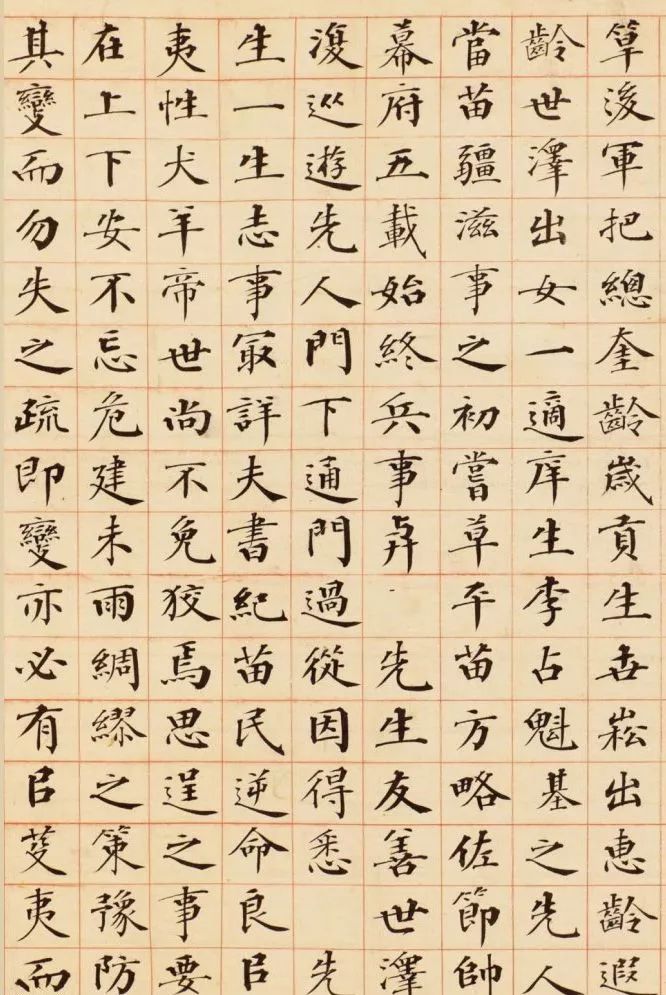 筸後軍把總奎齡歲貢生世崧出惠齡遐
齡世澤出女一適庠生李占魁基之先人
當苗疆滋事之初嘗草平苗方略佐節帥
幕府五載始終兵事與 先生友善世澤
復巡遊先人門下通門過從因得悉 先
生一生志事最詳夫書紀苗民逆命良㠯
夷性犬羊帝世尚不免狡焉思逞之事要
在上下安不忘危建未雨綢繆之策豫防
其變而勿失之疏即變亦必有㠯芟夷而